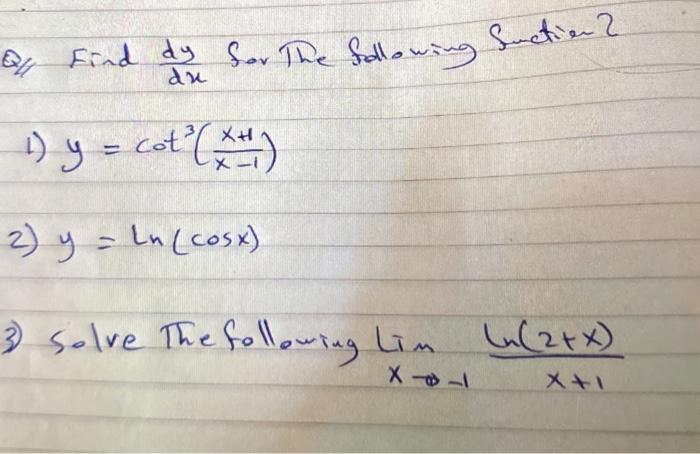 Q// Find dy/dx for The following function?
1) y = cot³(x+1/x-1)
2) y = Ln(cosx)
3) Solve The following Lim x→-1 Ln(2+x)/x+1